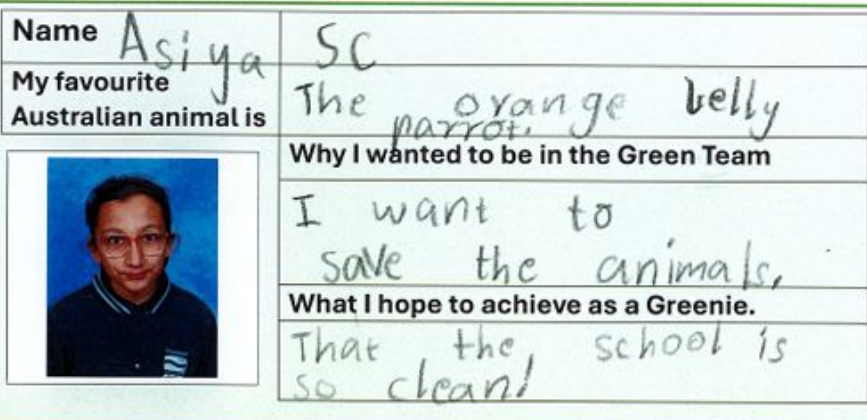 Name Asiya 5C
My favourite
Australian animal is
The orange belly
parrot.
Why I wanted to be in the Green Team
I want to
save the animals,
What I hope to achieve as a Greenie.
That the, school is
so clean!